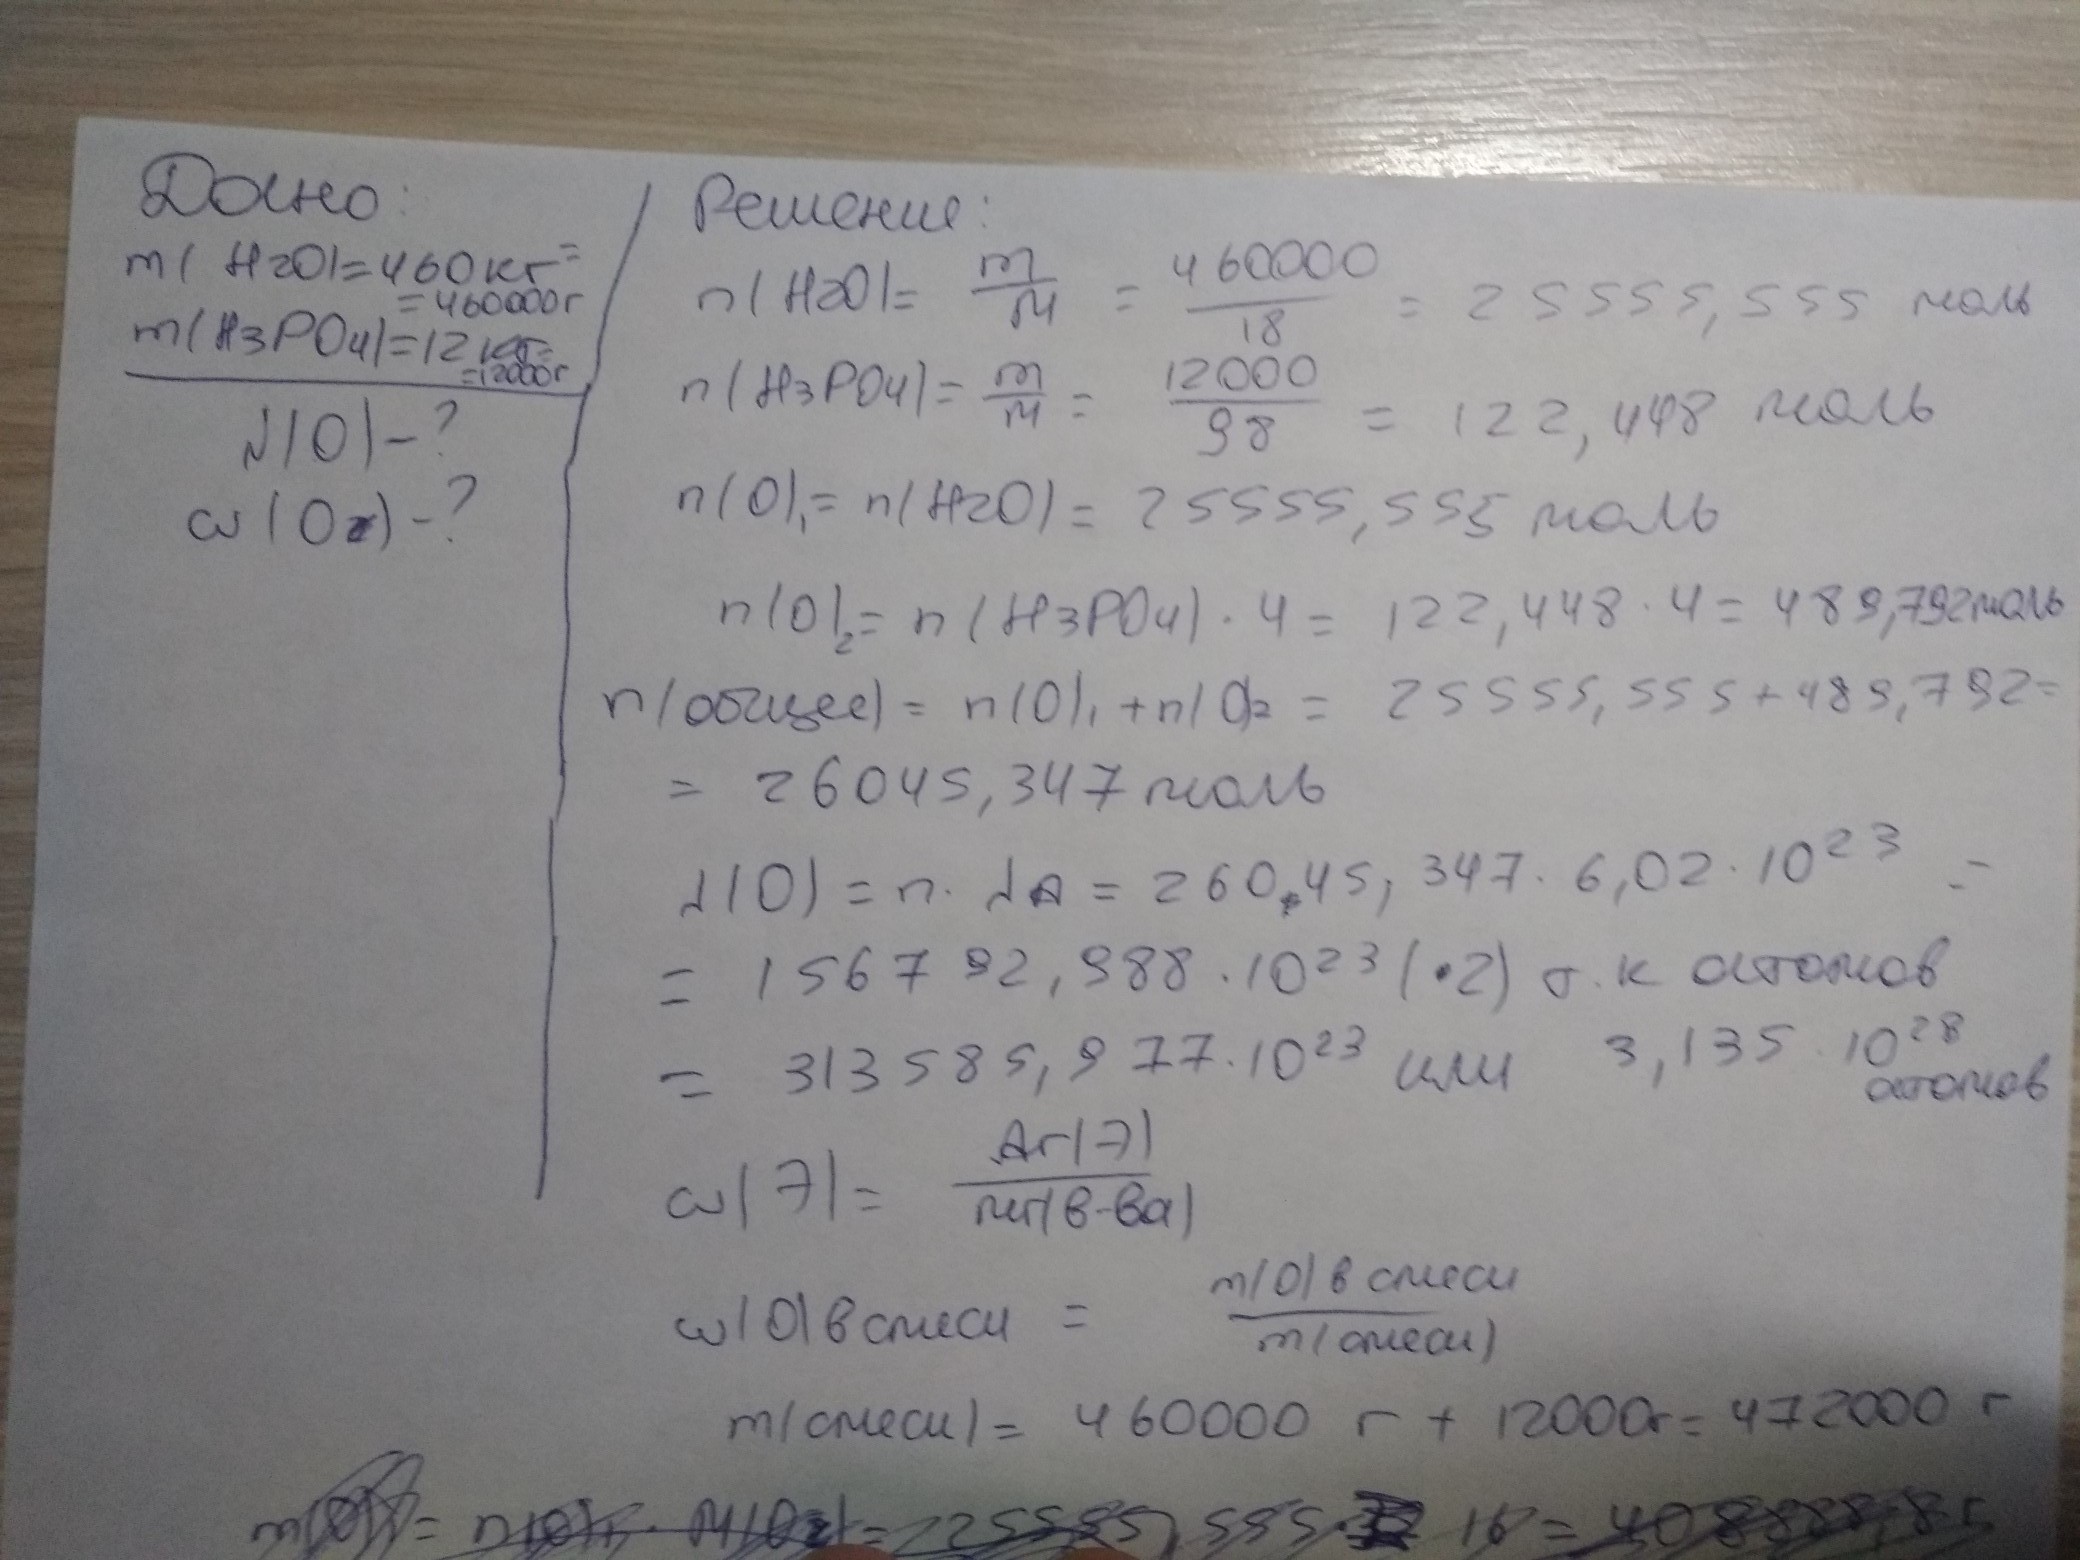 Дано:
m(H2O)=460кг=
=460000г
m(H3PO4)=12кг=
=12000г
N(O)-?
ω(O)-?
Решение:
n(H2O)= m/M = 460000/18 = 25555,555 моль
n(H3PO4)= m/M = 12000/98 = 122,448 моль
n(O)1= n(H2O)= 25555,555 моль
n(O)2= n(H3PO4)·4= 122,448·4= 489,792моль
n(общее)= n(O)1+n(O)2= 25555,555+489,792=
= 26045,347 моль
N(O)=n·NA= 26045,347·6,02·10²³ =
= 156792,988·10²³(·2) т.к атомов
= 313585,977·10²³ или 3,135·10²⁸
атомов
ω(Э)= Ar(Э)/Mr(в-ва)
ω(O)в смеси = m(O)в смеси/m(смеси)
m(смеси)= 460000 г + 12000г= 472000 г